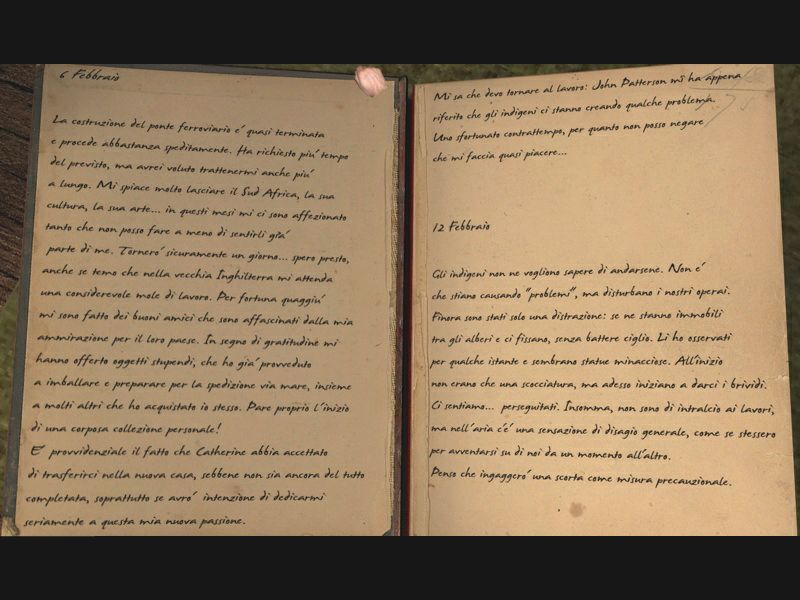 6 Febbraio
La costruzione del ponte ferroviario e' quasi terminata
e procede abbastanza speditamente. Ha richiesto piu' tempo
del previsto, ma avrei voluto trattenermi anche piu'
a lungo. Mi spiace molto lasciare il Sud Africa, la sua
cultura, la sua arte... in questi mesi mi ci sono affezionato
tanto che non posso fare a meno di sentirli gia'
parte di me. Tornero' sicuramente un giorno... spero presto,
anche se temo che nella vecchia Inghilterra mi attenda
una considerevole mole di lavoro. Per fortuna quaggiu'
mi sono fatto dei buoni amici che sono affascinati dalla mia
ammirazione per il loro paese. In segno di gratitudine mi
hanno offerto oggetti stupendi, che ho gia' provveduto
a imballare e preparare per la spedizione via mare, insieme
a molti altri che ho acquistato io stesso. Pare proprio l'inizio
di una corposa collezione personale!
E' provvidenziale il fatto che Catherine abbia accettato
di trasferirci nella nuova casa, sebbene non sia ancora del tutto
completata, soprattutto se avro' intenzione di dedicarmi
seriamente a questa mia nuova passione.
Mi sa che devo tornare al lavoro: John Patterson mi ha appena
riferito che gli indigeni ci stanno creando qualche problema.
Uno sfortunato contrattempo, per quanto non posso negare
che mi faccia quasi piacere...
12 Febbraio
Gli indigeni non ne vogliono sapere di andarsene. Non e'
che stiano causando "problemi", ma disturbano i nostri operai.
Finora sono stati solo una distrazione: se ne stanno immobili
tra gli alberi e ci fissano, senza battere ciglio. Li ho osservati
per qualche istante e sembrano statue minacciose. All'inizio
non erano che una scocciatura, ma adesso iniziano a darci i brividi.
Ci sentiamo... perseguitati. Insomma, non sono di intralcio ai lavori,
ma nell'aria c'e' una sensazione di disagio generale, come se stessero
per avventarsi su di noi da un momento all'altro.
Penso che ingaggero' una scorta come misura precauzionale.